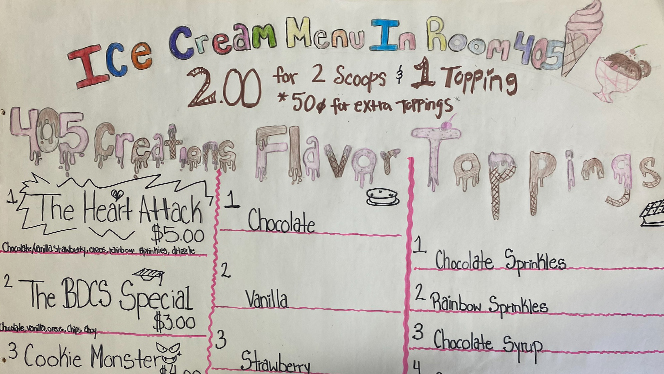 Ice Cream Menu In Room 405
2.00 for 2 Scoops & 1 Topping
*50¢ for extra toppings
405 Creations
1 The Heart Attack
$5.00
Chocolate, Vanilla, Strawberry, oreos, rainbow sprinkles, drizzle
2 The BDCS Special
$3.00
Chocolate, vanilla, oreo, chips, choy
3 Cookie Monster
Flavor
1 Chocolate
2 Vanilla
3 Strawberry
Toppings
1 Chocolate Sprinkles
2 Rainbow Sprinkles
3 Chocolate Syrup
4